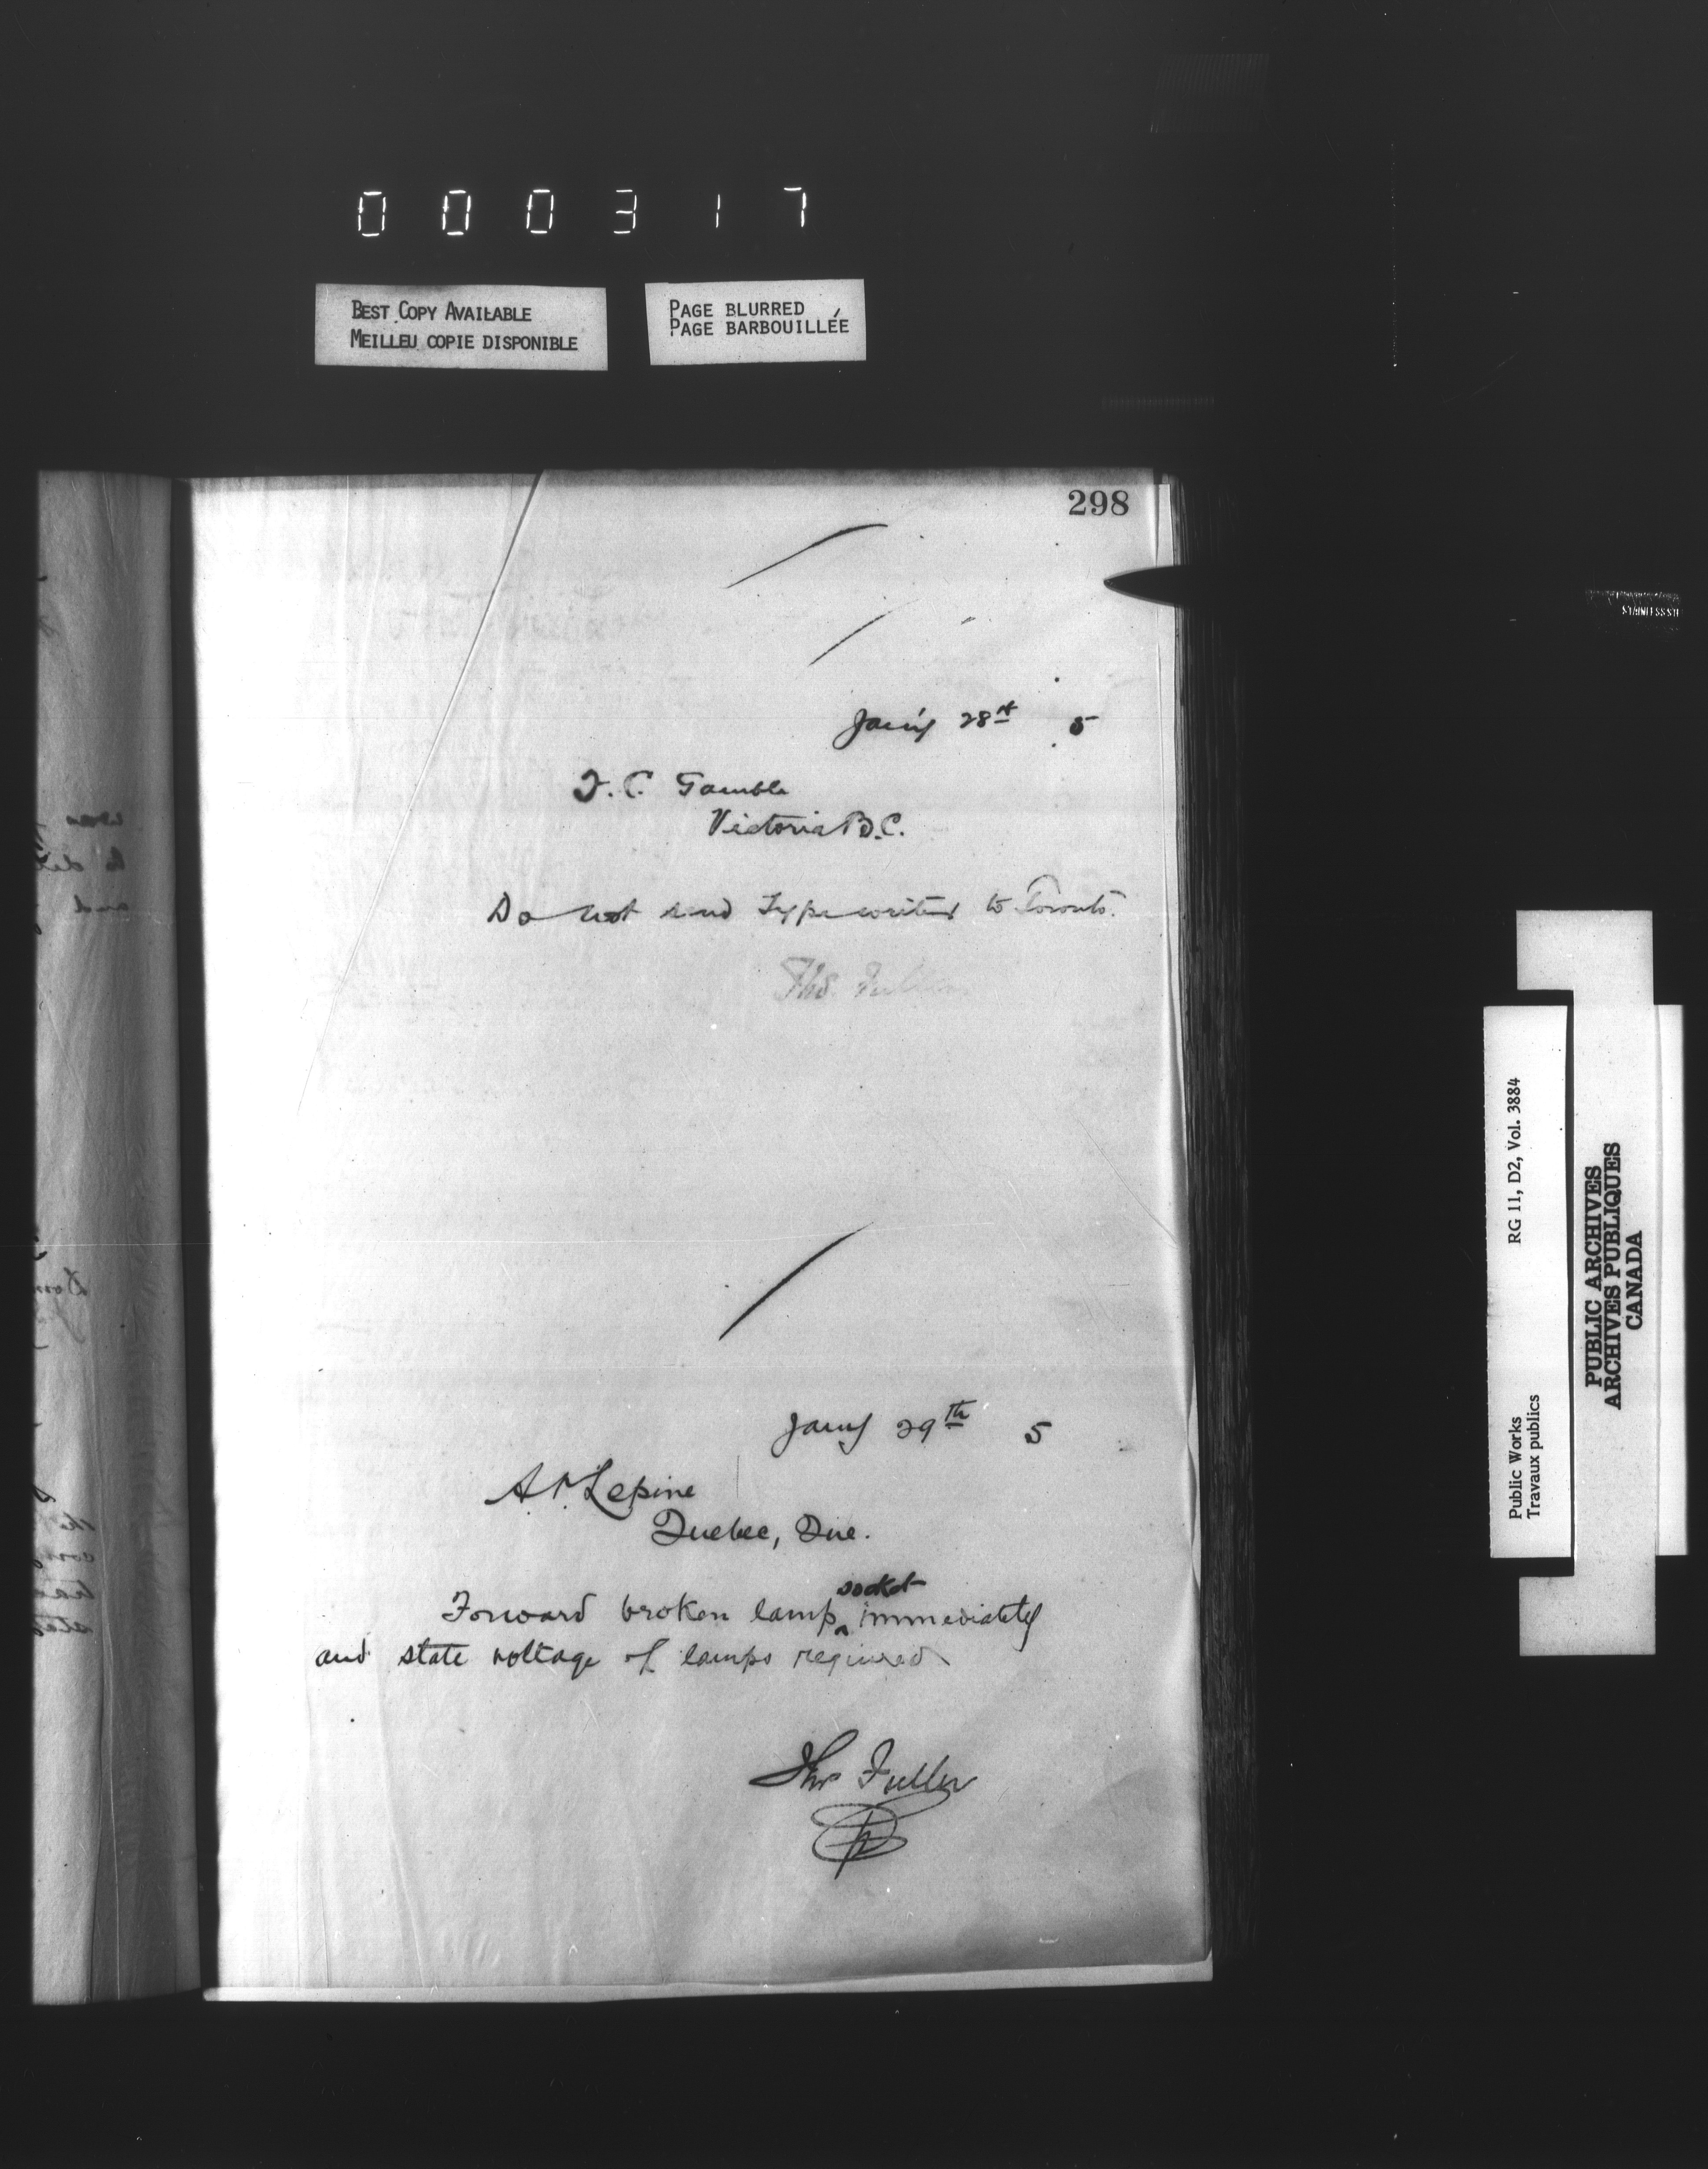 000317
BEST COPY AVAILABLE
MEILLEU COPIE DISPONIBLE
PAGE BLURRED
PAGE BARBOUILLÉE
298
Jan'y 28th 5
F. C. Gamble
Victoria B.C.
Do not send Typewriter to Toronto.
Thos. Fuller
Jany 29th 5
A. P. Lepine
Quebec, Que.
socket
Forward broken lamp ^ immediately
and state voltage of lamps required
Thos Fuller
Public Works RG 11, D2, Vol. 3884
Travaux publics
PUBLIC ARCHIVES
ARCHIVES PUBLIQUES
CANADA